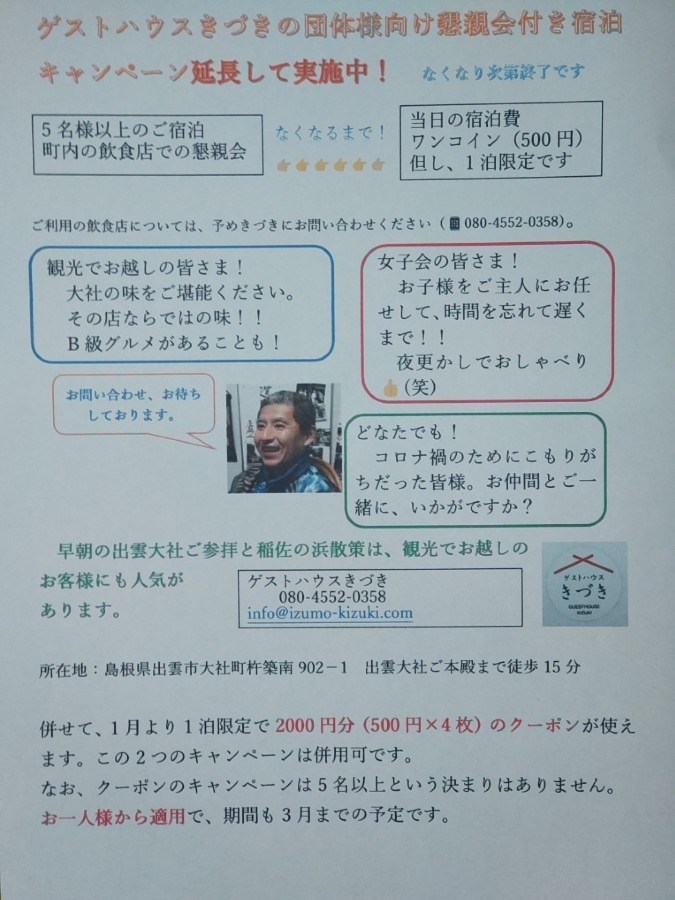 ゲストハウスきづきの団体様向け懇親会付き宿泊
キャンペーン延長して実施中！　なくなり次第終了です
5名様以上のご宿泊
町内の飲食店での懇親会
なくなるまで！
当日の宿泊費
ワンコイン（500円）
但し、1泊限定です
ご利用の飲食店については、予めきづきにお問い合わせください（080-4552-0358）。
観光でお越しの皆さま！
大社の味をご堪能ください。
その店ならではの味！！
B級グルメがあることも！
女子会の皆さま！
お子様をご主人にお任
せして、時間を忘れて遅く
まで！！
夜更かしでおしゃべり
（笑）
お問い合わせ、お待ち
しております。
どなたでも！
コロナ禍のためにこもりが
ちだった皆様。お仲間とご一
緒に、いかがですか？
早朝の出雲大社ご参拝と稲佐の浜散策は、観光でお越しの
お客様にも人気が
あります。
ゲストハウスきづき
080-4552-0358
info@izumo-kizuki.com
ゲストハウス
きづき
GUESTHOUSE
KIZUKI
所在地：島根県出雲市大社町杵築南902－1　出雲大社ご本殿まで徒歩15分
併せて、1月より1泊限定で2000円分（500円×4枚）のクーポンが使え
ます。この2つのキャンペーンは併用可です。
なお、クーポンのキャンペーンは5名以上という決まりはありません。
お一人様から適用で、期間も3月までの予定です。